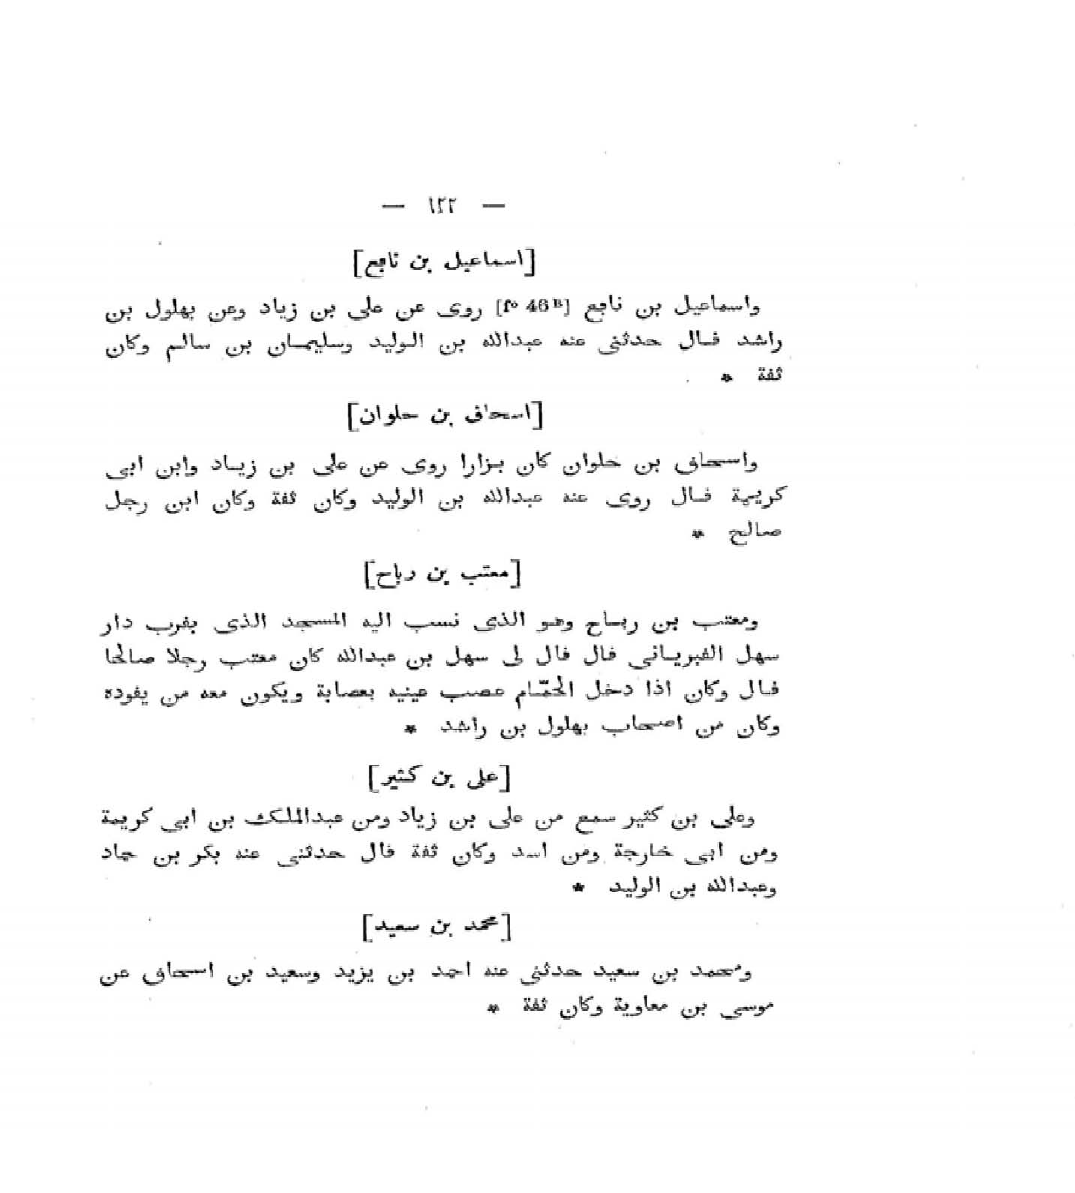 — ١٢٢ —
[اسماعيل بن نافع]
واسماعيل بن نافع [f° 46 B] روى عن على بن زياد وعن بهلول بن
راشد قال حدثنى عنه عبدالله بن الوليد وسليمان بن سالم وكان
ثقة *
[اسحاق بن حلوان]
واسحاق بن حلوان كان بزارا روى عن على بن زياد وابن ابى
كريمة قال روى عنه عبدالله بن الوليد وكان ثقة وكان ابن رجل
صالح *
[معتب بن رباح]
ومعتب بن رباح وهو الذى نسب اليه المسجد الذى بقرب دار
سهل القبريانى قال قال لى سهل بن عبدالله كان معتب رجلا صالحا
قال وكان اذا دخل الحمّام عصب عينيه بعصابة ويكون معه من يقوده
وكان من اصحاب بهلول بن راشد *
[على بن كثير]
وعلى بن كثير سمع من على بن زياد ومن عبدالملك بن ابى كريمة
ومن ابى خارجة ومن اسد وكان ثقة قال حدثنى عنه بكر بن حماد
وعبدالله بن الوليد *
[محمد بن سعيد]
ومحمد بن سعيد حدثنى عنه احمد بن يزيد وسعيد بن اسحاق عن
موسى بن معاوية وكان ثقة *